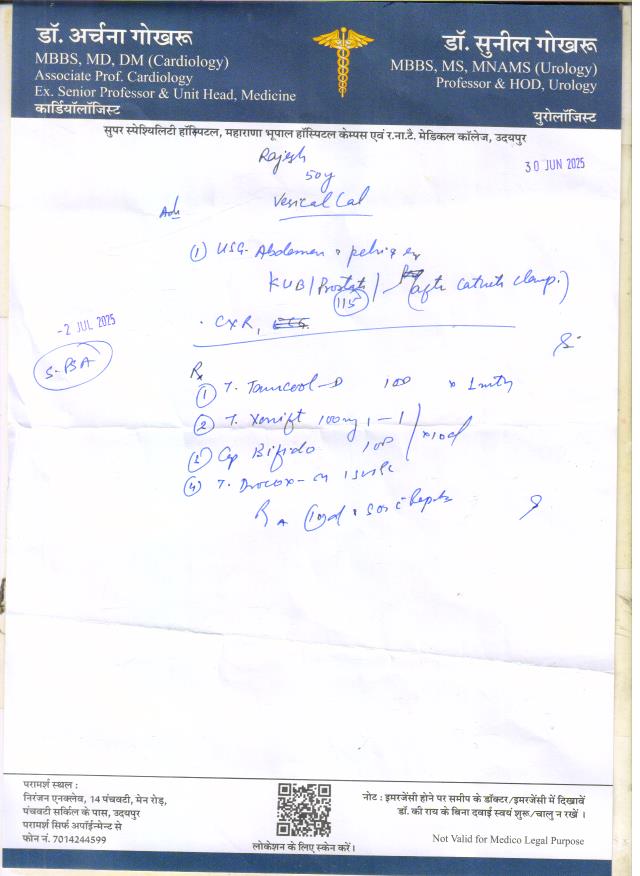 डॉ. अर्चना गोखरू
MBBS, MD, DM (Cardiology)
Associate Prof. Cardiology
Ex. Senior Professor & Unit Head, Medicine
कार्डियॉलॉजिस्ट
डॉ. सुनील गोखरू
MBBS, MS, MNAMS (Urology)
Professor & HOD, Urology
युरोलॉजिस्ट
सुपर स्पेश्यिलिटी हॉस्पिटल, महाराणा भूपाल हॉस्पिटल केम्पस एवं र.ना.टै. मेडिकल कॉलेज, उदयपुर
Rajesh
30 JUN 2025
50y
Vesical Cal
Adv
① USG Abdomen & pelvis
KUB/Prostate/ (after catheter clamp.)
115
-2 JUL 2025
CXR, ECG
S-PSA
Rx
① T. 100 x 1 mth
② T. 100mg 1-1
③ Cap Bifido 100 x10d
④ T.
परामर्श स्थल :
निरंजन एनक्लेव, 14 पंचवटी, मेन रोड़,
पंचवटी सर्किल के पास, उदयपुर
परामर्श सिर्फ अपॉईन्मेन्ट से
फोन नं. 7014244599
लोकेशन के लिए स्केन करें।
नोट : इमरजेंसी होने पर समीप के डॉक्टर/इमरजेंसी में दिखावें
डॉ. की राय के बिना दवाई स्वयं शुरू/चालु न रखें ।
Not Valid for Medico Legal Purpose